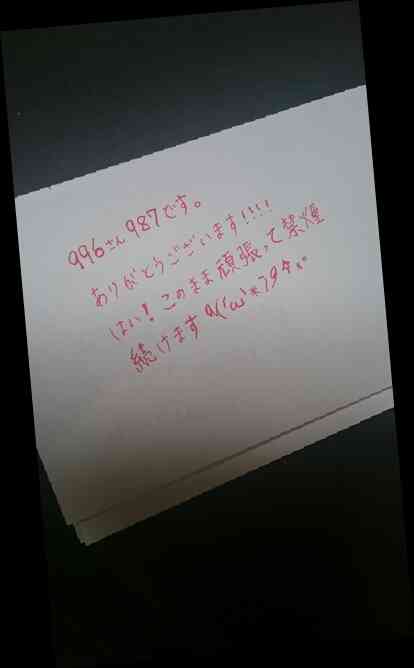 996さん987です。
ありがとうございます!!!!
はい!このまま頑張って禁煙
続けます٩('ω'*)و